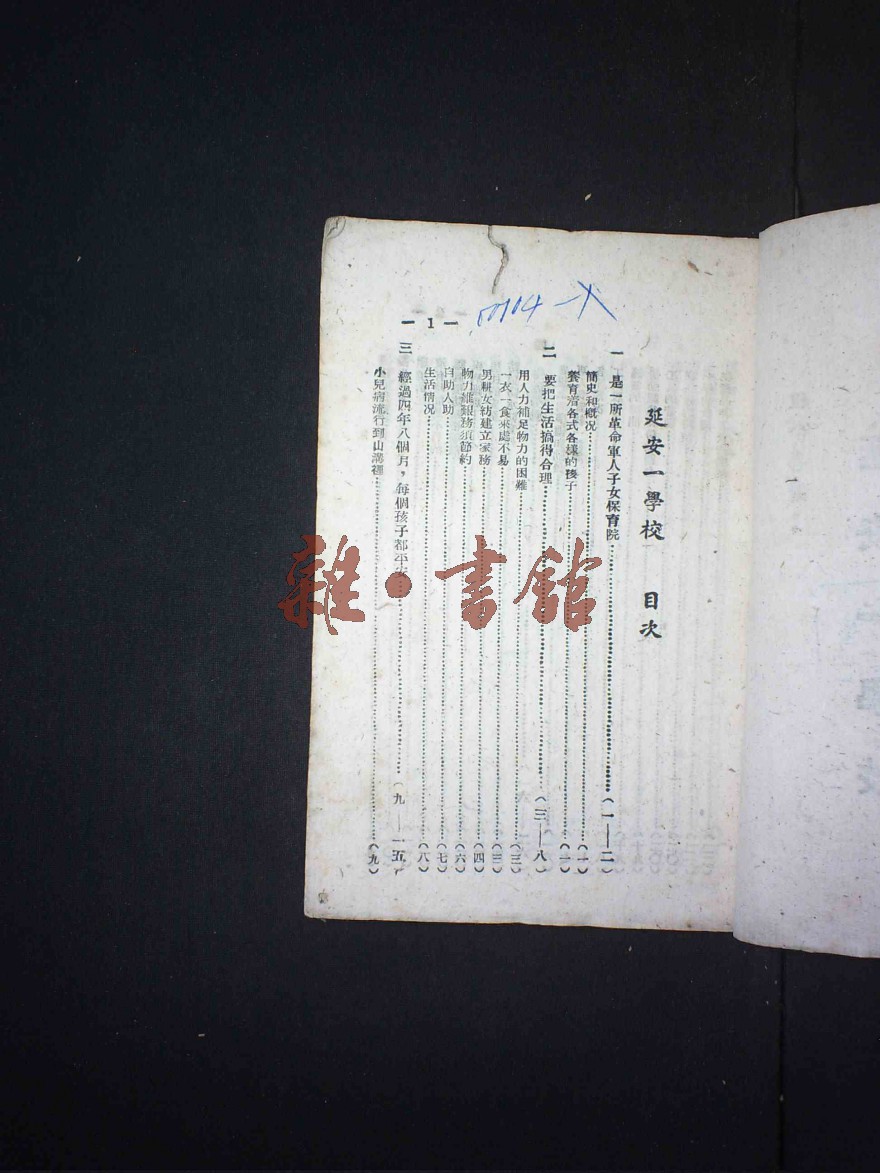 延安一學校 目次
一 是一所革命軍人子女保育院……(一—二)
簡史和概況……(一)
養育着各式各樣的孩子……(一)
二 要把生活搞得合理……(三—八)
用人力補足物力的困難……(三)
一衣一食來處不易……(三)
男耕女紡建立家務……(四)
物力維艱務須節約……(六)
自助人助……(七)
生活情况……(八)
三 經過四年八個月，每個孩子都平安……(九—一五)
小兒病流行到山溝裡……(九)
— 1 —
雜·書館